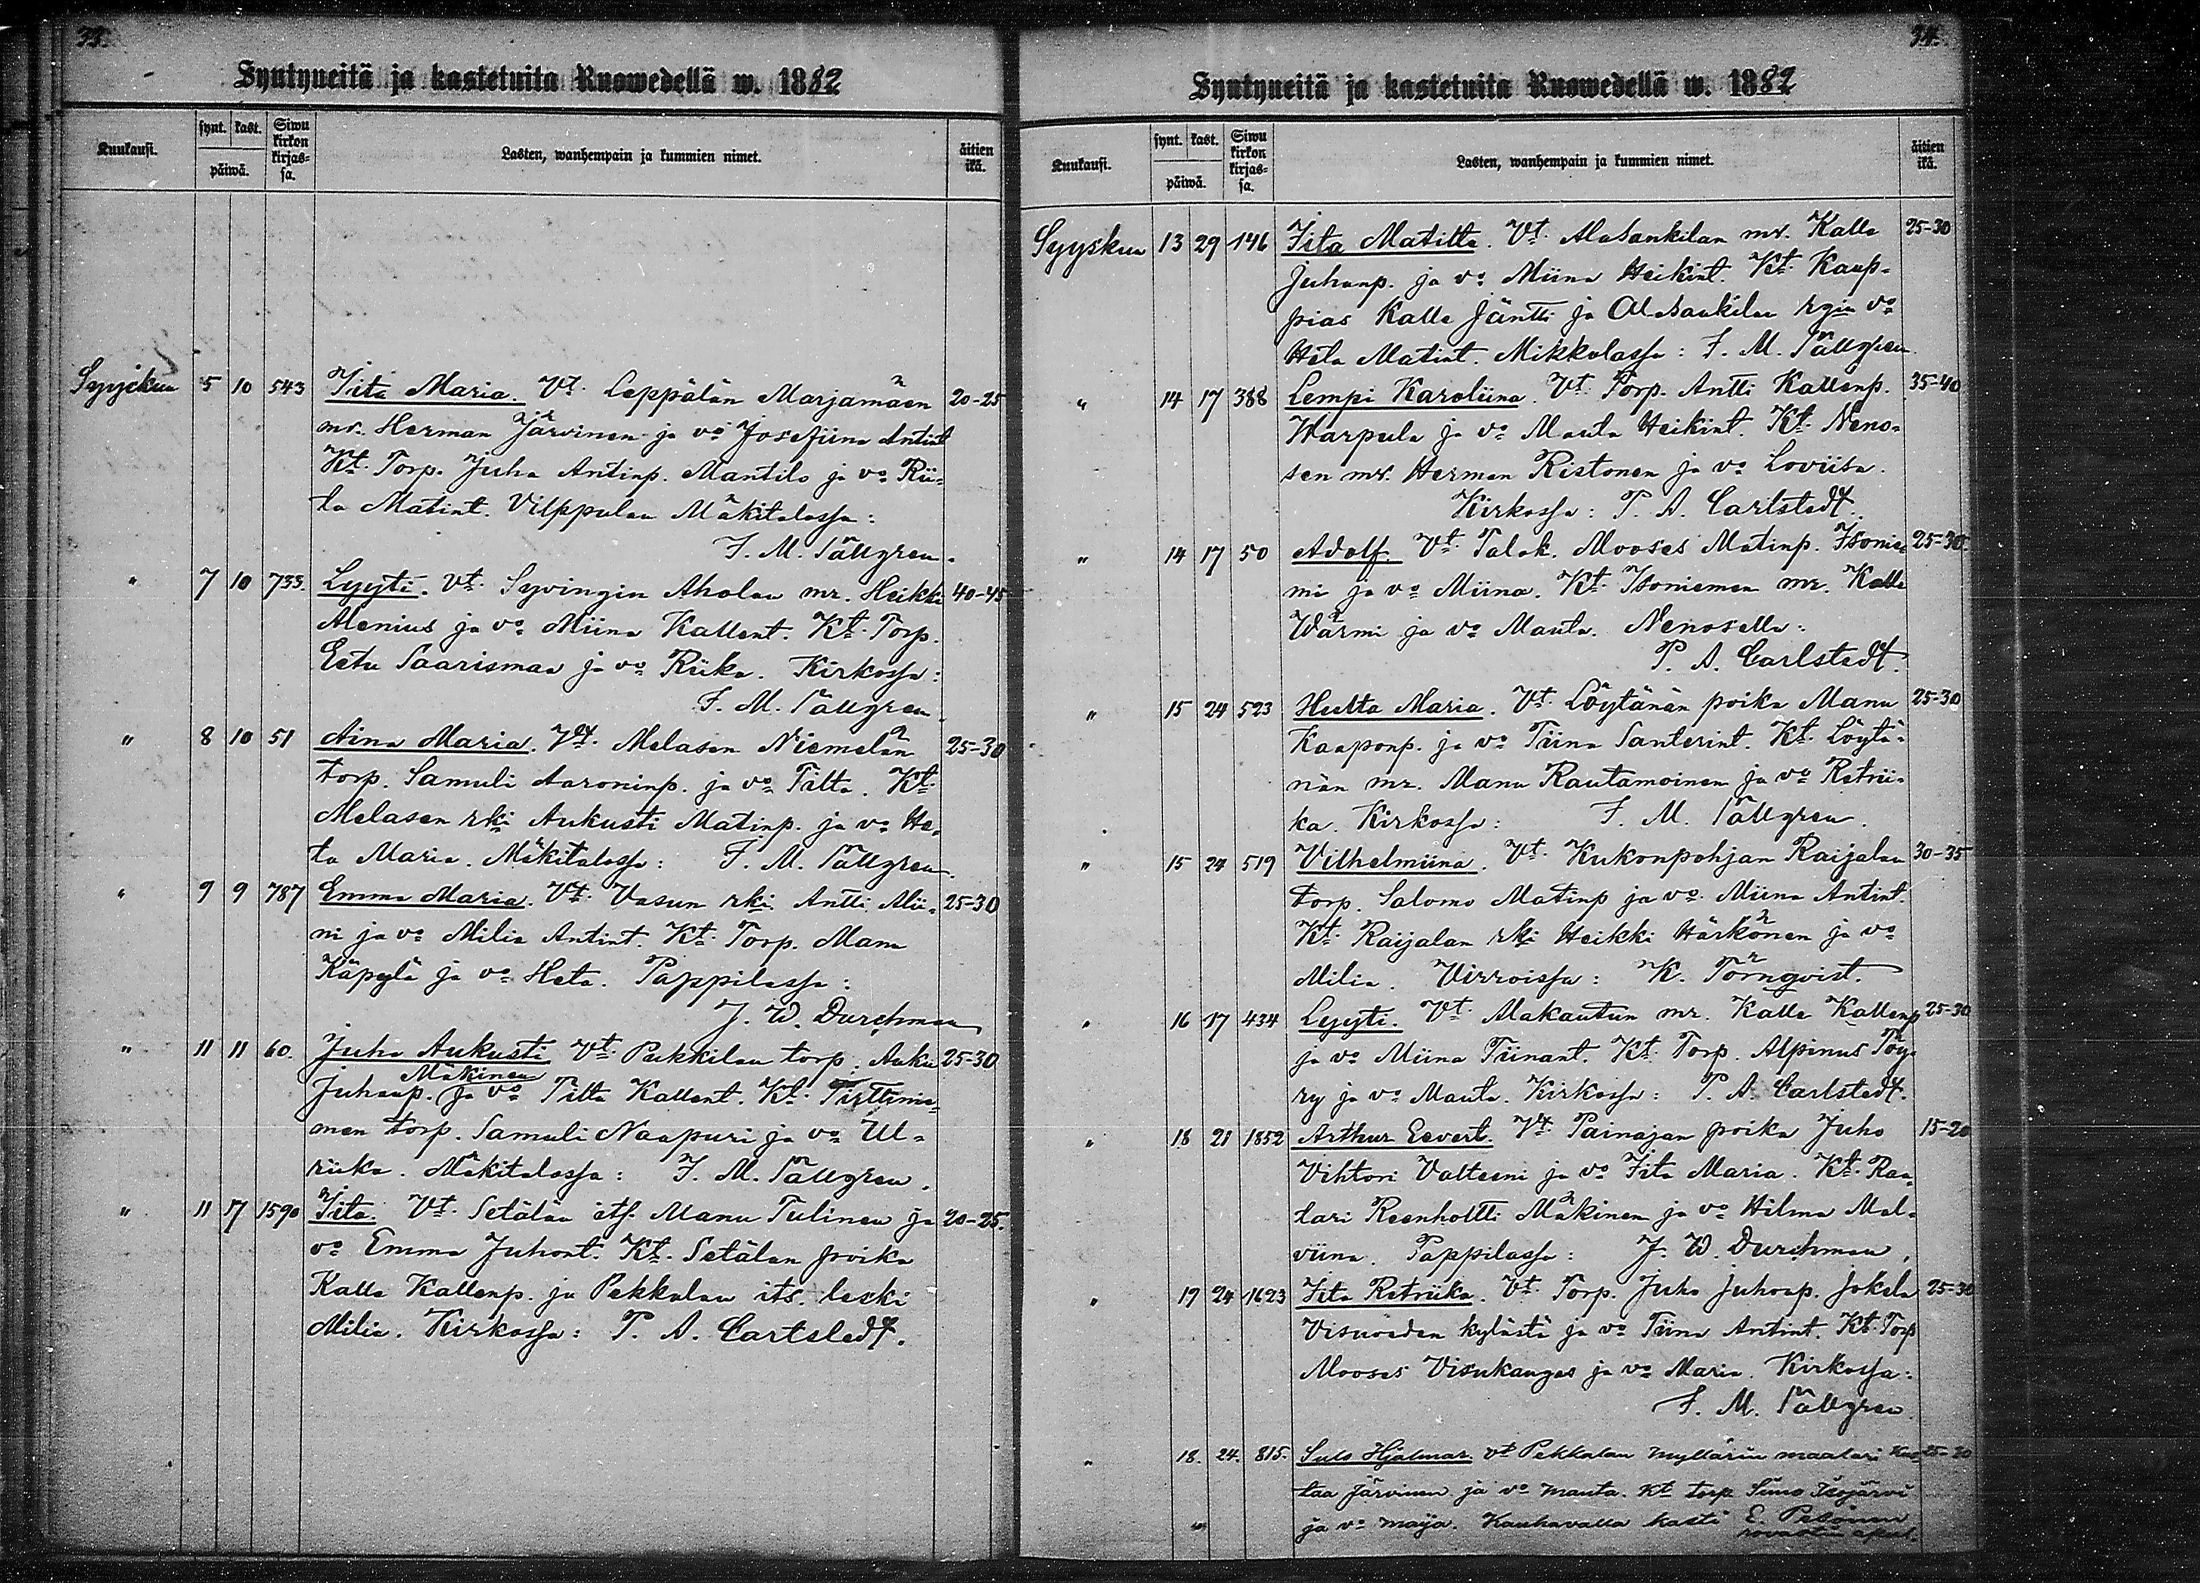 33.
Syntyneitä ja kastetuita Ruowedellä w. 1882
Kuukausi. synt. kast. päiwä. Siwu kirkon kirjassa. Lasten, wanhempain ja kummien nimet. äitien ikä.
Syyskuu 5 10 543 Iita Maria. Vt. Leppälän Marjamäen 20-25
mr. Herman Järvinen ja vo Josefiina Antint
Kt. Torp. Juha Antinp. Mantila ja vo Rii-
ta Matint. Vilppulan Mäkitalossa:
F. M. Tällgren.
" 7 10 733. Lyyti. Vt. Syvingin Aholan mr. Heikki 40-45
Alenius ja vo Miina Kallent. Kt. Torp.
Eetu Saarismaa ja vo Riika. Kirkossa:
F. M. Tällgren.
" 8 10 51 Aina Maria. Vt. Melasen Niemelän 25-30
torp. Samuli Aaroninp. ja vo Tilta. Kt.
Melasen rki Aukusti Matinp. ja vo He-
ta Maria. Mäkitalossa: F. M. Tällgren.
" 9 9 787 Emma Maria. Vt. Vasun rki Antti Alii- 25-30
ni ja vo Milia Antint. Kt. Torp. Manu
Käpylä ja vo Heta. Pappilassa:
J. W. Durchman
" 11 11 60. Juho Aukusti Vt. Pukkilan torp. Auku 25-30
Mäkinen
Juhanp. ja vo Tilta Kallent. Kt.
men torp. Samuli Naapuri ja vo Ul-
riika. Mäkitalossa: F. M. Tällgren.
" 11 17 1590 Iita. Vt. Setälän its. Manu Tulinen ja 20-25.
vo Emma Juhont. Kt. Setälän poika
Kalle Kallenp. ja Pekkalan its. leski
Milia. Kirkossa: P. A. Carlstedt.
34.
Syntyneitä ja kastetuita Ruowedellä w. 1882
Kuukausi. synt. kast. päiwä. Siwu kirkon kirjassa. Lasten, wanhempain ja kummien nimet. äitien ikä.
Syyskuu 13 29 146 Iita Matilta. Vt. AlaSankilan mr. Kalle 25-30
Juhanp. ja vo Miina Heikint. Kt. Kaup-
pias Kalle Jäntti ja AlaSankilan rgin vo
Heta Matint. Mikkolassa: F. M. Tällgren.
" 14 17 388 Lempi Karoliina. Vt. Torp. Antti Kallenp. 35-40
Warpula ja vo Manta Heikint. Kt. Neno-
sen mr. Herman Ristonen ja vo Loviisa.
Kirkossa: P. A. Carlstedt.
" 14 17 50 Adolf. Vt. Talok. Mooses Matinp. Isonie- 25-30.
mi ja vo Miina. Kt. Isoniemen mr. Kalle
Wärmi ja vo Manta. Nenosella:
P. A. Carlstedt.
" 15 24 523 Hulta Maria. Vt. Löytänän poika Manu 25-30
Kaaponp. ja vo Tiina Santerint. Kt. Löytä-
nän mr. Manu Rautamoinen ja vo Retrii-
ka. Kirkossa: F. M. Tällgren.
" 15 24 519 Vilhelmiina. Vt. Kukonpohjan Raijalan 30-35
torp. Salomo Matinp ja vo Miina Antint.
Kt. Raijalan rki Heikki Härkönen ja vo
Milia. Virroissa: K. Törnqvist.
" 16 17 434 Lyyti. Vt. Makautun mr. Kalle Kallenp 25-30
ja vo Miina Tiinant. Kt. Torp. Alpinus Töy-
ry ja vo Manta. Kirkossa: P. A. Carlstedt.
" 18 21 1852 Arthur Eevert. Vt. Painajan poika Juho 15-20
Vihtori Valteeni ja vo Iita Maria. Kt. Raa-
tari Reenholtti Mäkinen ja vo Hilma Mal-
viina. Pappilassa: J. W. Durchman.
" 19 24 1623 Iita Retriika. Vt. Torp. Juho Juhonp. Jokela 25-30
Visuveden kylästä ja vo Tiina Antint. Kt. Torp
Mooses Visukangas ja vo Maria. Kirkossa:
F. M. Tällgren.
" 18. 24. 815. Sulo Hjalmar. vt Pekkalan myllärin maalari Kus- 25-30
taa Järvinen ja vo Manta. Kt torp Simo Isojärvi
ja vo Maija. Kauhavalla kasti E. Pesonen
rovastin apul.